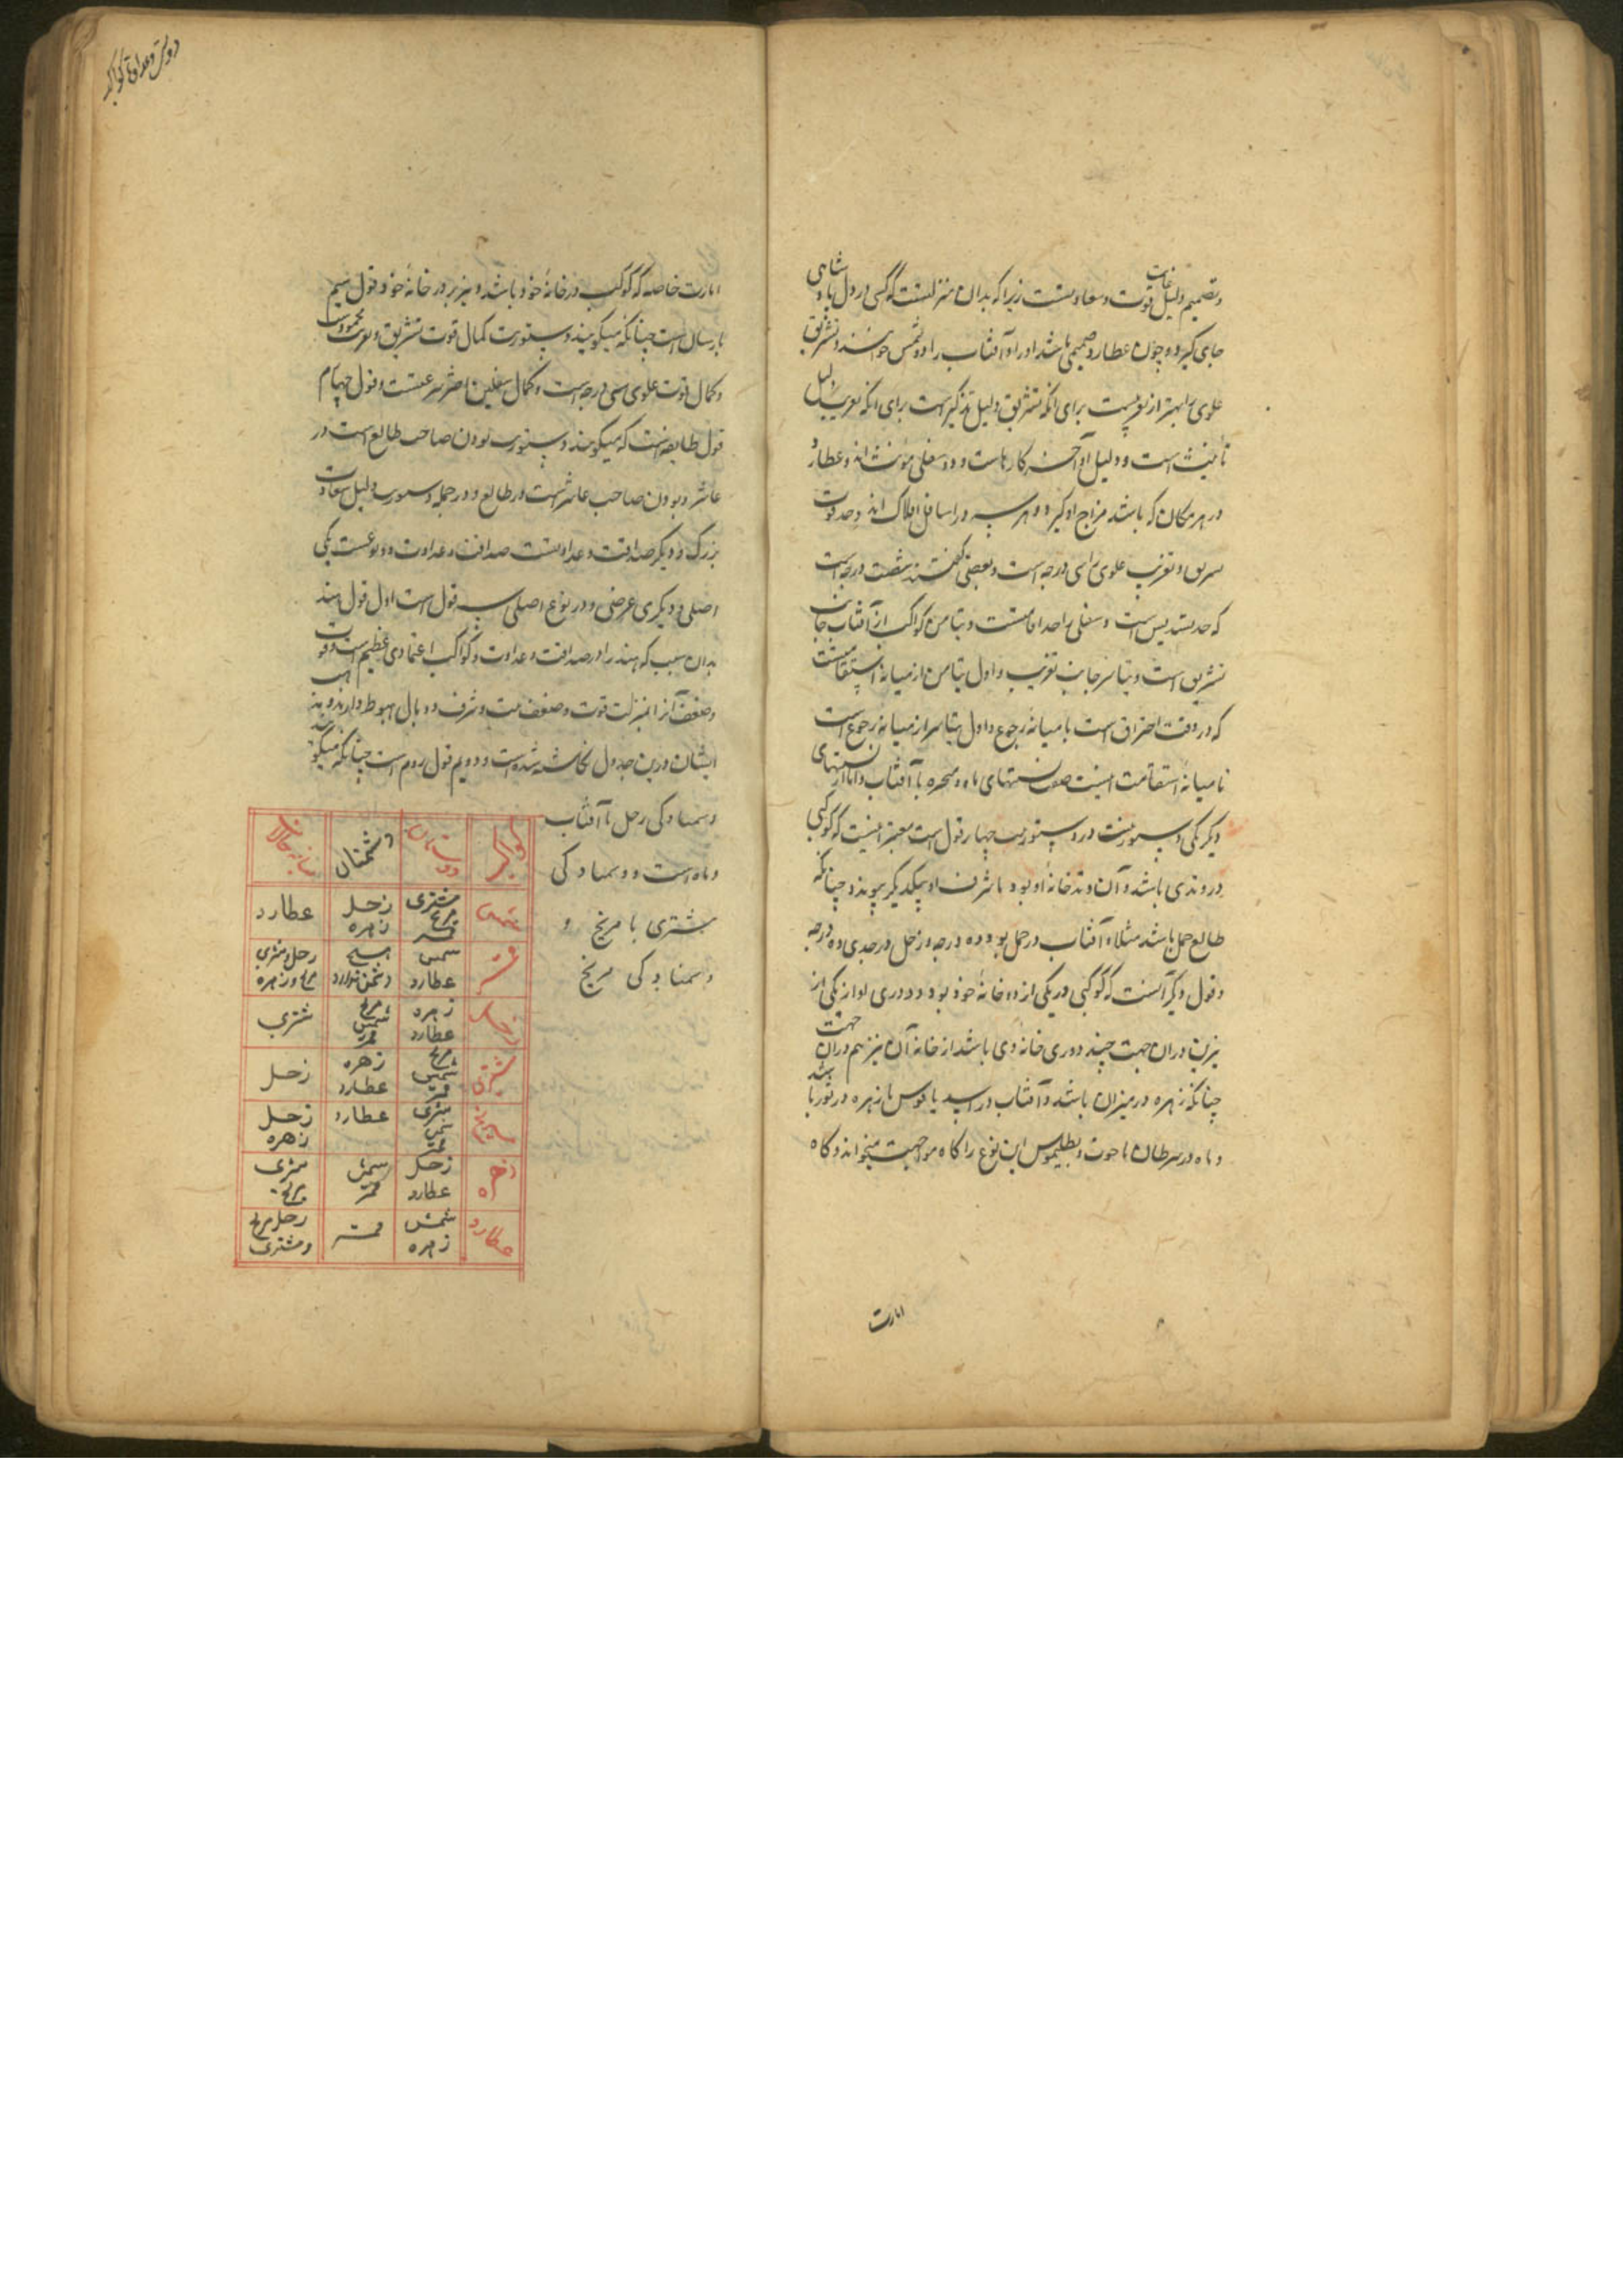 وتصمیم دلیل غایت قوت و سعادتست زیرا که بدان منزلتست که کسی در دل پادشاهی
جای گیرد و چون عطارد صمیمی باشد او را و آفتاب را دو شمس خوانند و تشریق
علوی را بهتر از تغریبست برای آنکه تشریق دلیل تذکیرست برای آنکه تغریب دلیل
تأنیث است و دلیل او آخر کارهاست و دو سفلی مؤنث اند و عطارد
در هر مکان که باشد مزاج او گیرد و هر سه در اسافل افلاک اند و حد قوت
تشریق و تغریب علوی را سی درجه است و بعضی گفتند شصت درجه است
که حد تسدیس است و سفلی را حد اقامتست و تیامن کواکب از آفتاب جانب
تشریق است و تیاسر جانب تغریب و اول تیامن از میانه استقامتست
که در وقت احتراق است تا میانه رجوع و اول تیاسر از میانه رجوع است
تا میانه استقامت اینست صفت نسبتهای ماه و متحیره با آفتاب و اما از نسبتهای
دیگر یکی دستوریست و در دستوریت چهار قول است معتبر اینست که کوکبی
در وتدی باشد و آن وتد خانه او بود یا شرف او و بیکدیگر پیوند چنانکه
طالع حمل باشد مثلا و آفتاب در حمل بود ده درجه و زحل در جدی ده درجه
و قول دیگر آنست که کوکبی در یکی از دو خانه خود بود و دوری او از یکی از
نیرین در آن جهت چند دوری خانه وی باشد از خانه آن نیر هم در آن جهت
چنانکه زهره در میزان باشد و آفتاب در اسد یا قوس یا زهره در ثور باشد
و ماه در سرطان یا حوت و بطلیموس این نوع را گاه مواجهت میخواند و گاه
امارت
دوستی و عداوت کواکب
امارت خاصه که کوکب در خانه خود باشد و نیز بر در خانه خود و قول سیم
است چنانکه میگویند دستوریت کمال قوت تشریق و تغریب محمودست
و کمال قوت علوی سی درجه است و کمال سفلین تا حضر سرعتست و قول چهارم
قول طایفه است که میگویند دستوریت بودن صاحب طالع است در
عاشر و بودن صاحب عاشرست در طالع و در جمله دستوریت دلیل سعادت
بزرگ و دیگر صداقت و عداوتست صداقت و عداوت دو نوعست یکی
اصلی و دیگری عرضی و در نوع اصلی سه قول است اول قول هند
بدان سبب که هند را در صداقت و عداوت کواکب اعتمادی عظیم است و قوت
و ضعف آنرا بمنزلت قوت و ضعف بیت و شرف و وبال و هبوط دارند و مذهب
ایشان درین جدول نگاشته شده است و دویم قول روم است چنانکه میگویند
دشمنادگی زحل با آفتاب
و ماه است و دشمنادگی
مشتری با مریخ و
دشمنادگی مریخ
کواکب دوستان دشمنان میانه حالان
شمس مشتری مریخ قمر زحل زهره عطارد
قمر شمس عطارد هیچ دشمن ندارد زحل و مشتری مریخ و زهره
زحل زهره عطارد مریخ شمس قمر مشتری
مشتری مریخ شمس قمر زهره عطارد زحل
مریخ مشتری شمس قمر عطارد زحل زهره
زهره زحل عطارد شمس قمر مشتری مریخ
عطارد شمس زهره قمر زحل مریخ و مشتری